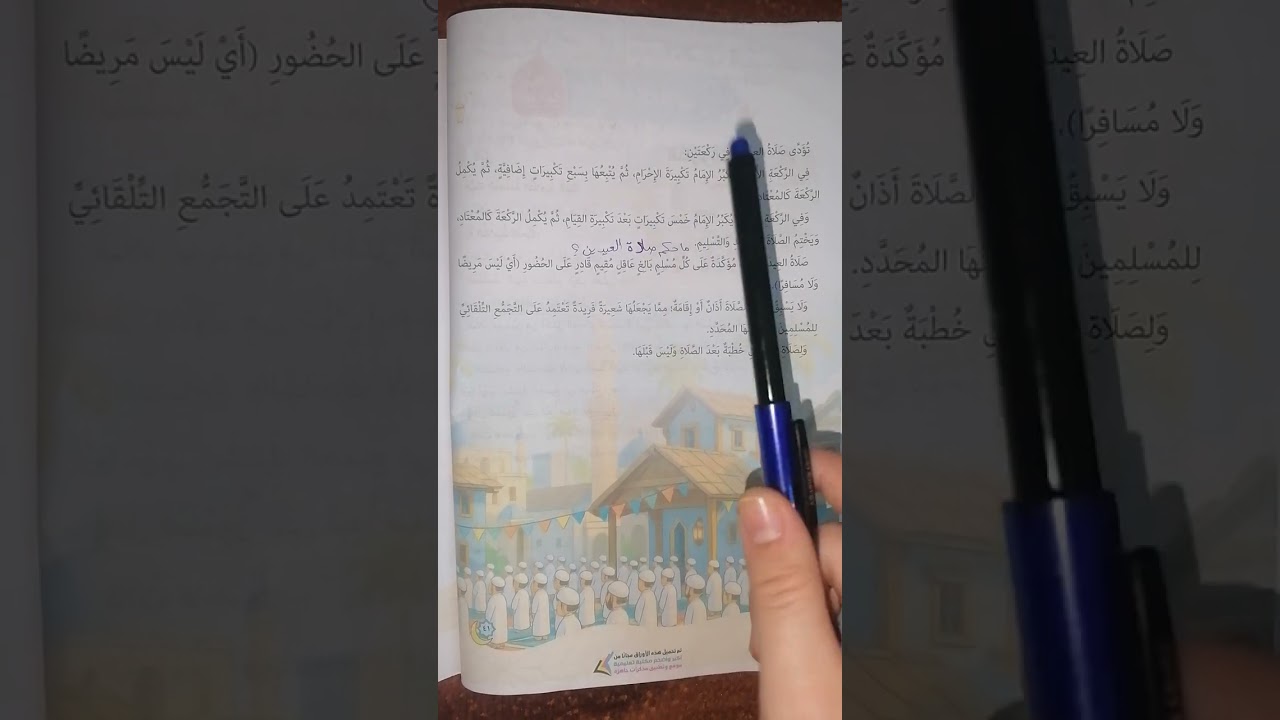 تُؤَدَّى صَلَاةُ العِيدَيْنِ فِي رَكْعَتَيْنِ:
فِي الرَّكْعَةِ يُكَبِّرُ الإِمَامُ تَكْبِيرَةَ الإِحْرَامِ، ثُمَّ يُتْبِعُهَا بِسَبْعِ تَكْبِيرَاتٍ إِضَافِيَّةٍ، ثُمَّ يُكْمِلُ
الرَّكْعَةَ كَالمُعْتَادِ
وَفِي الرَّكْعَةِ يُكَبِّرُ الإِمَامُ خَمْسَ تَكْبِيرَاتٍ بَعْدَ تَكْبِيرَةِ القِيَامِ، ثُمَّ يُكْمِلُ الرَّكْعَةَ كَالمُعْتَادِ،
وَيَخْتِمُ الصَّلَاةَ وَالتَّسْلِيمِ. ما حكم صلاة العيدين؟
صَلَاةُ مُؤَكَّدَةٌ عَلَى كُلِّ مُسْلِمٍ بَالِغٍ عَاقِلٍ مُقِيمٍ قَادِرٍ عَلَى الحُضُورِ (أَيْ لَيْسَ مَرِيضًا
وَلَا مُسَافِرًا).
وَلَا يَسْبِقُ الصَّلَاةَ أَذَانٌ أَوْ إِقَامَةٌ؛ مِمَّا يَجْعَلُهَا شَعِيرَةً فَرِيدَةً تَعْتَمِدُ عَلَى التَّجَمُّعِ التِّلْقَائِيِّ
لِلمُسْلِمِينَ المُحَدَّدِ.
وَلِصَلَاةِ خُطْبَةٌ بَعْدَ الصَّلَاةِ وَلَيْسَ قَبْلَهَا.
٤١
تم تحميل هذه الأوراق مجانا من